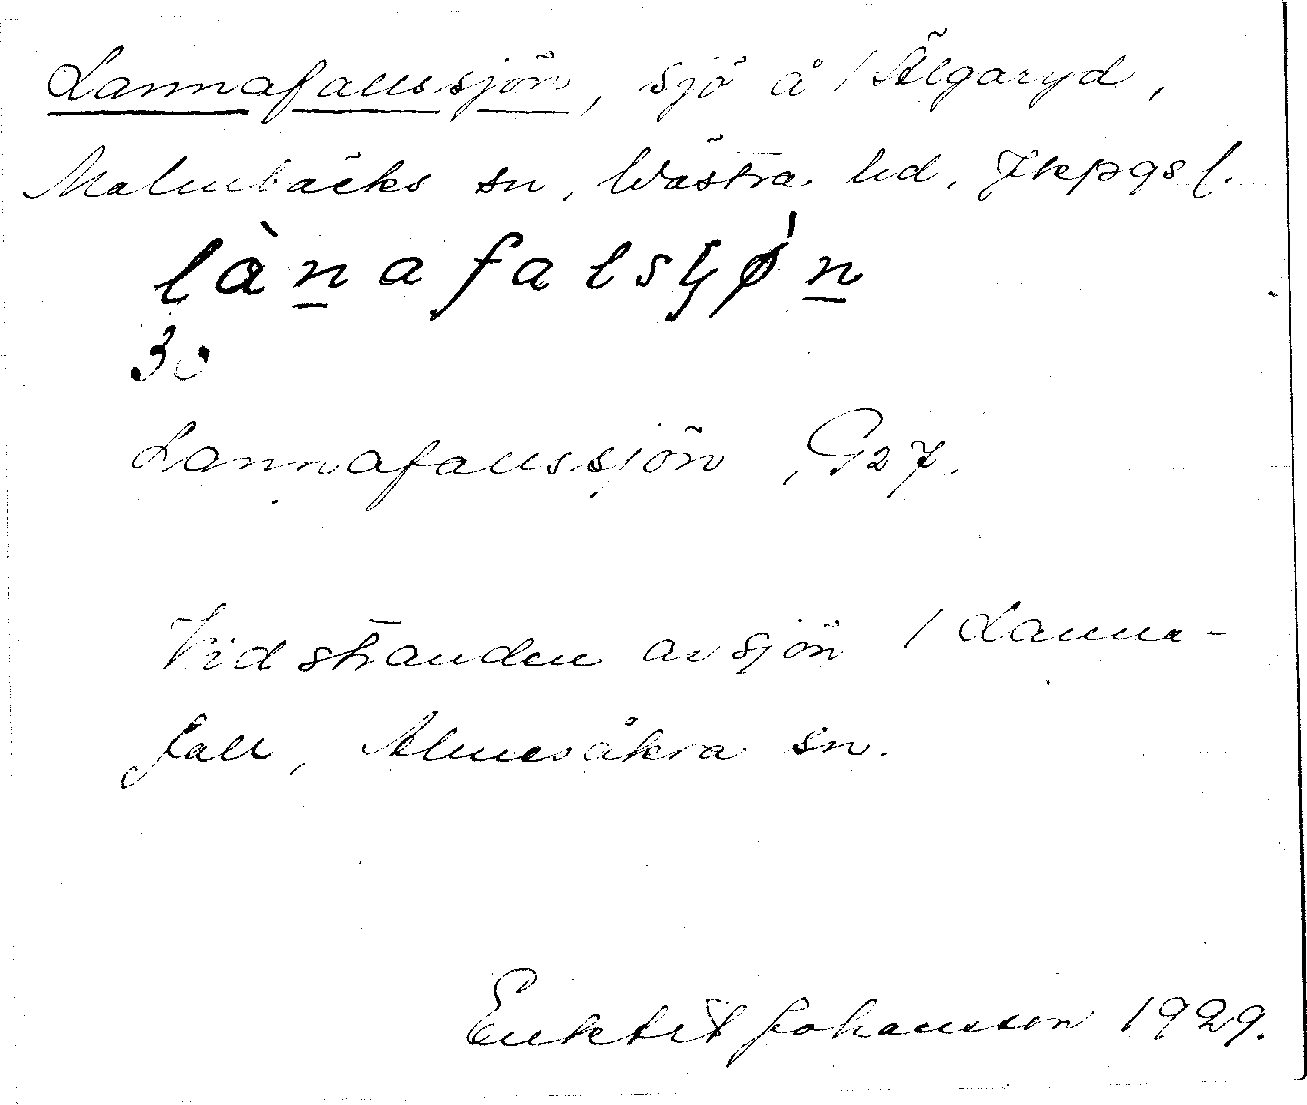 Lannafallssjön, sjö å / Älgaryd,
Malmbäcks sn, Västra hd, Jkpgs l.
lànafalsɧø̍n
30
Lannafallssjön, G27.
Vid stranden av sjön / Lanna-
fall, Almesåkra sn.
Johansson 1929.